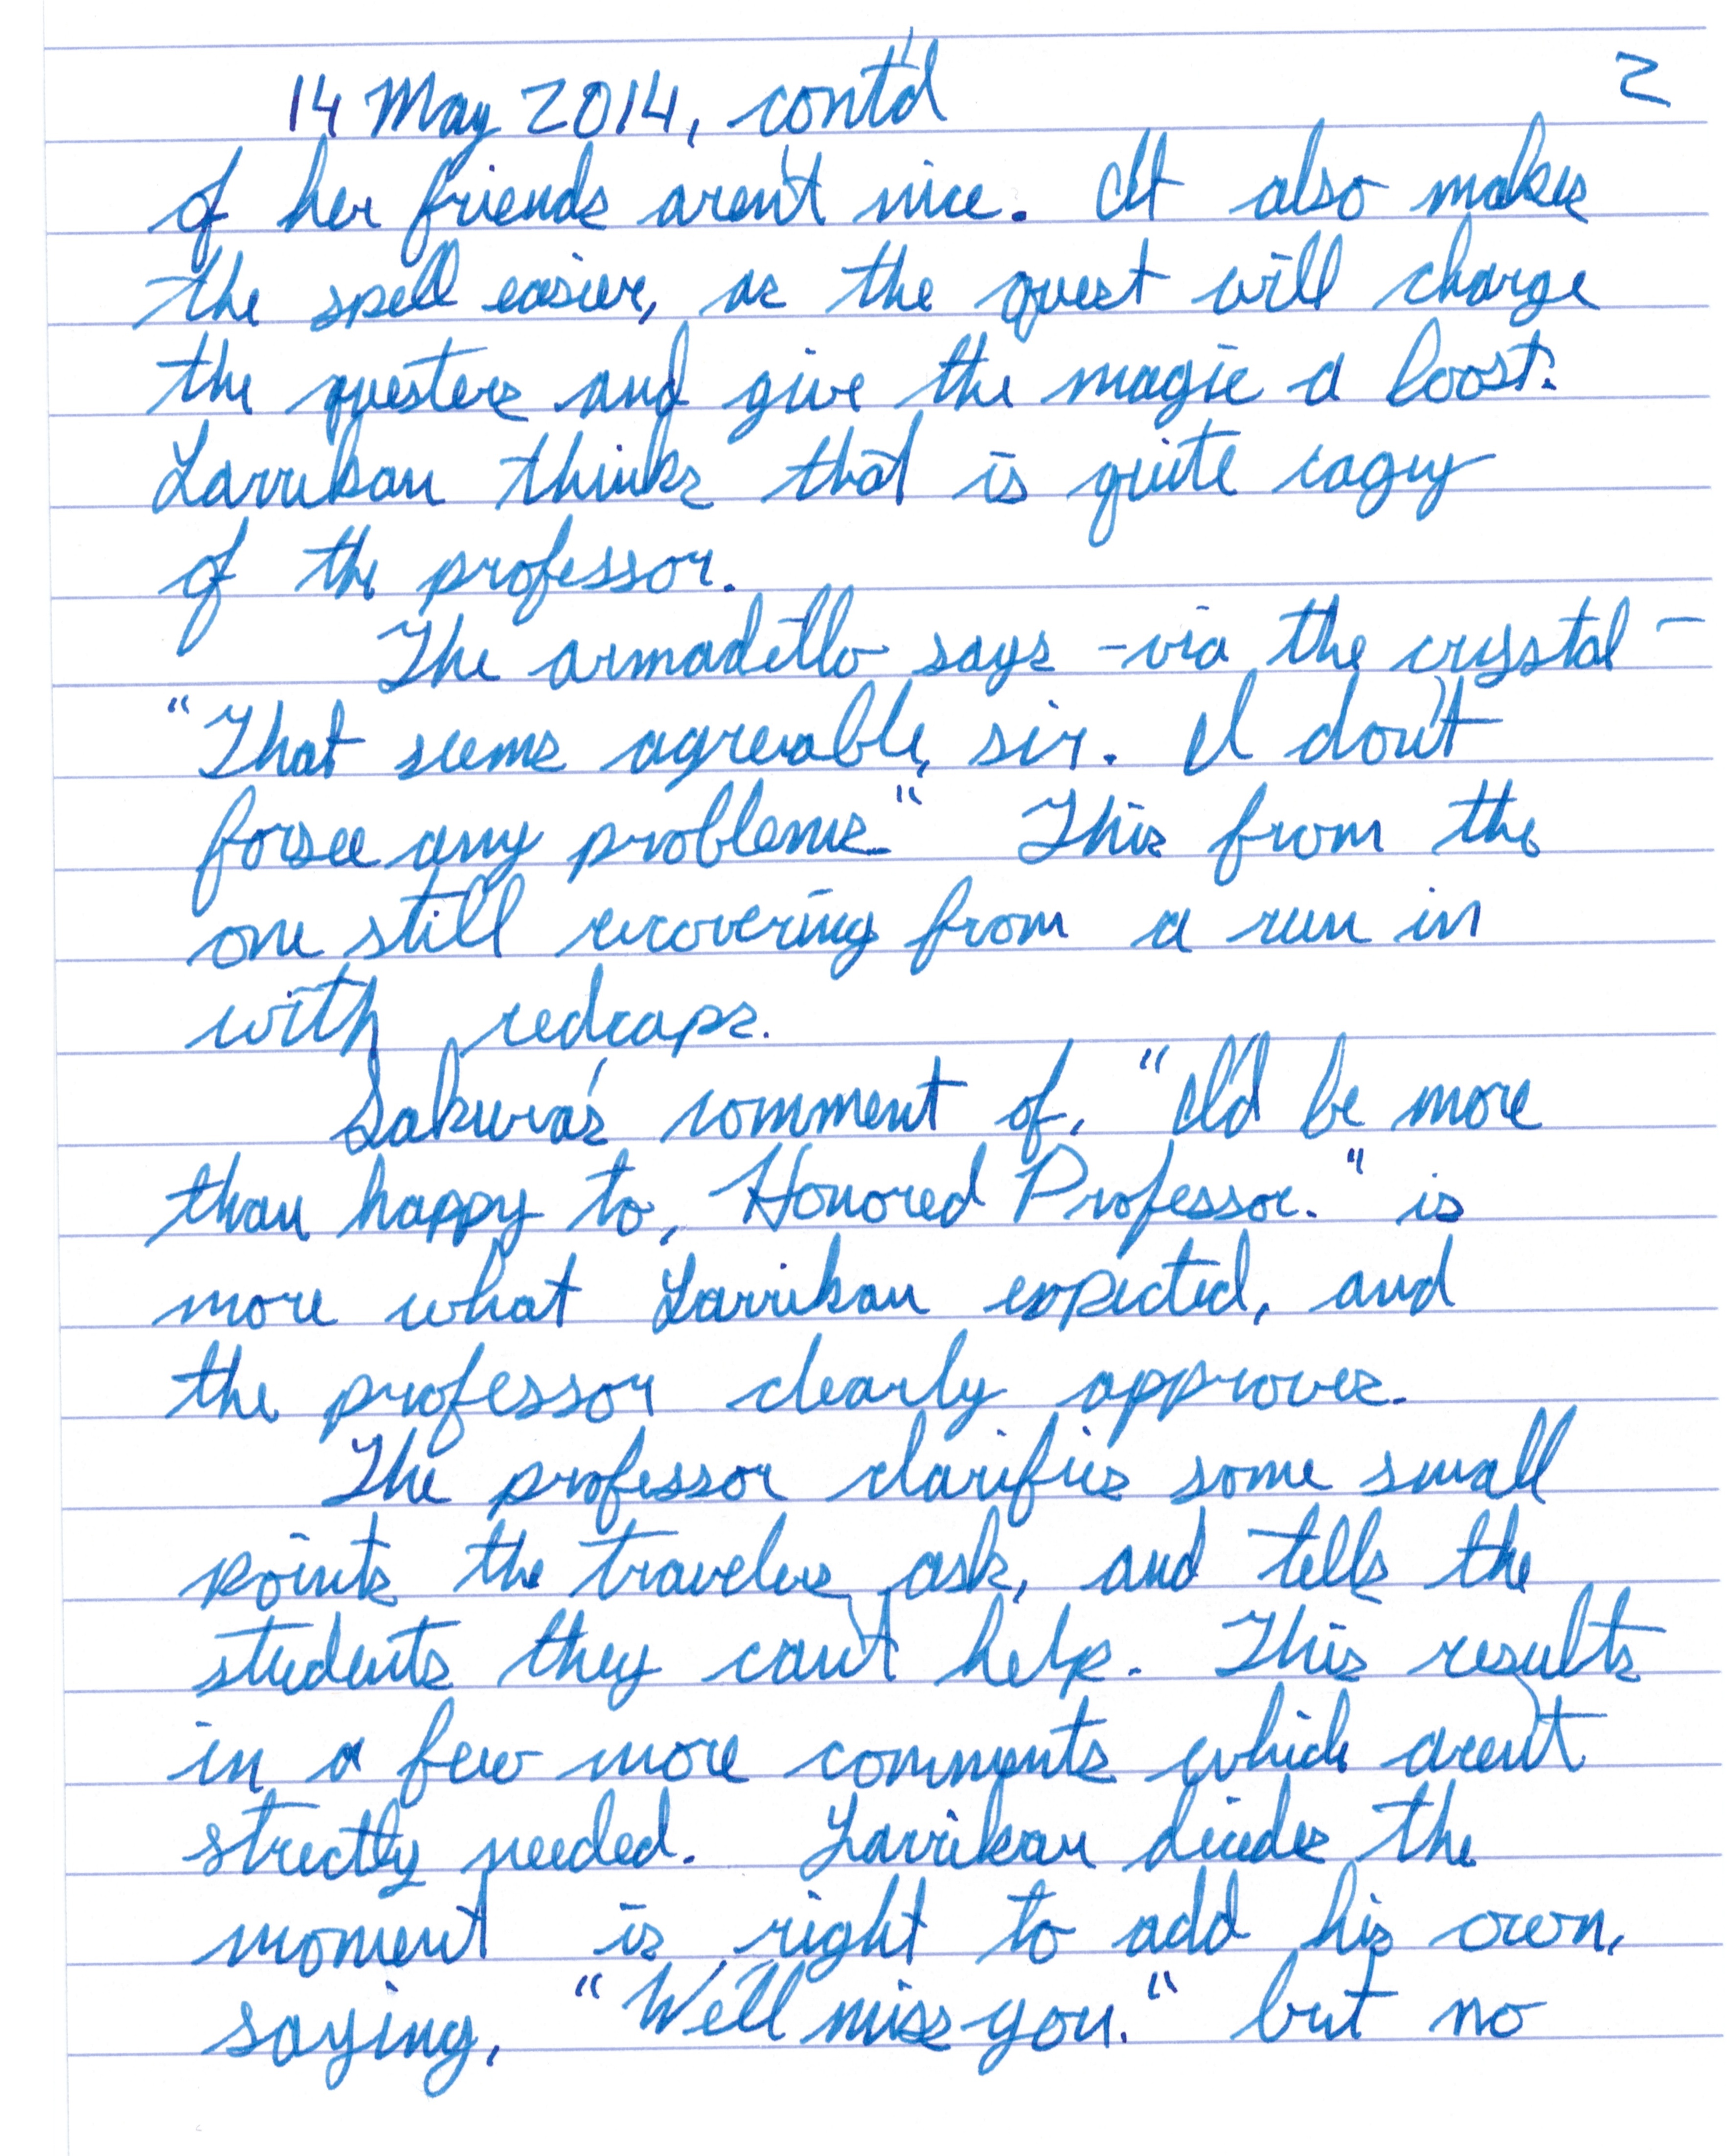 14 May 2014, cont'd 2
of her friends aren't nice. It also makes
the spell easier, as the quest will charge
the questers and give the magic a boost.
Larrikan thinks that is quite cagey
of the professor.
The armadillo says - via the crystal -
"That seems agreeable, sir. I don't
forsee any problems" This from the
one still recovering from a run in
with redcaps.
Sakura's comment of, "I'd be more
than happy to, Honored Professor." is
more what Larrikan expected, and
the professor clearly approves.
The professor clarifies some small
points the travelers ask, and tells the
students they can't help. This results
in a few more comments which aren't
strictly needed. Larrikan decides the
moment is right to add his own,
saying, "We'll miss you." but no